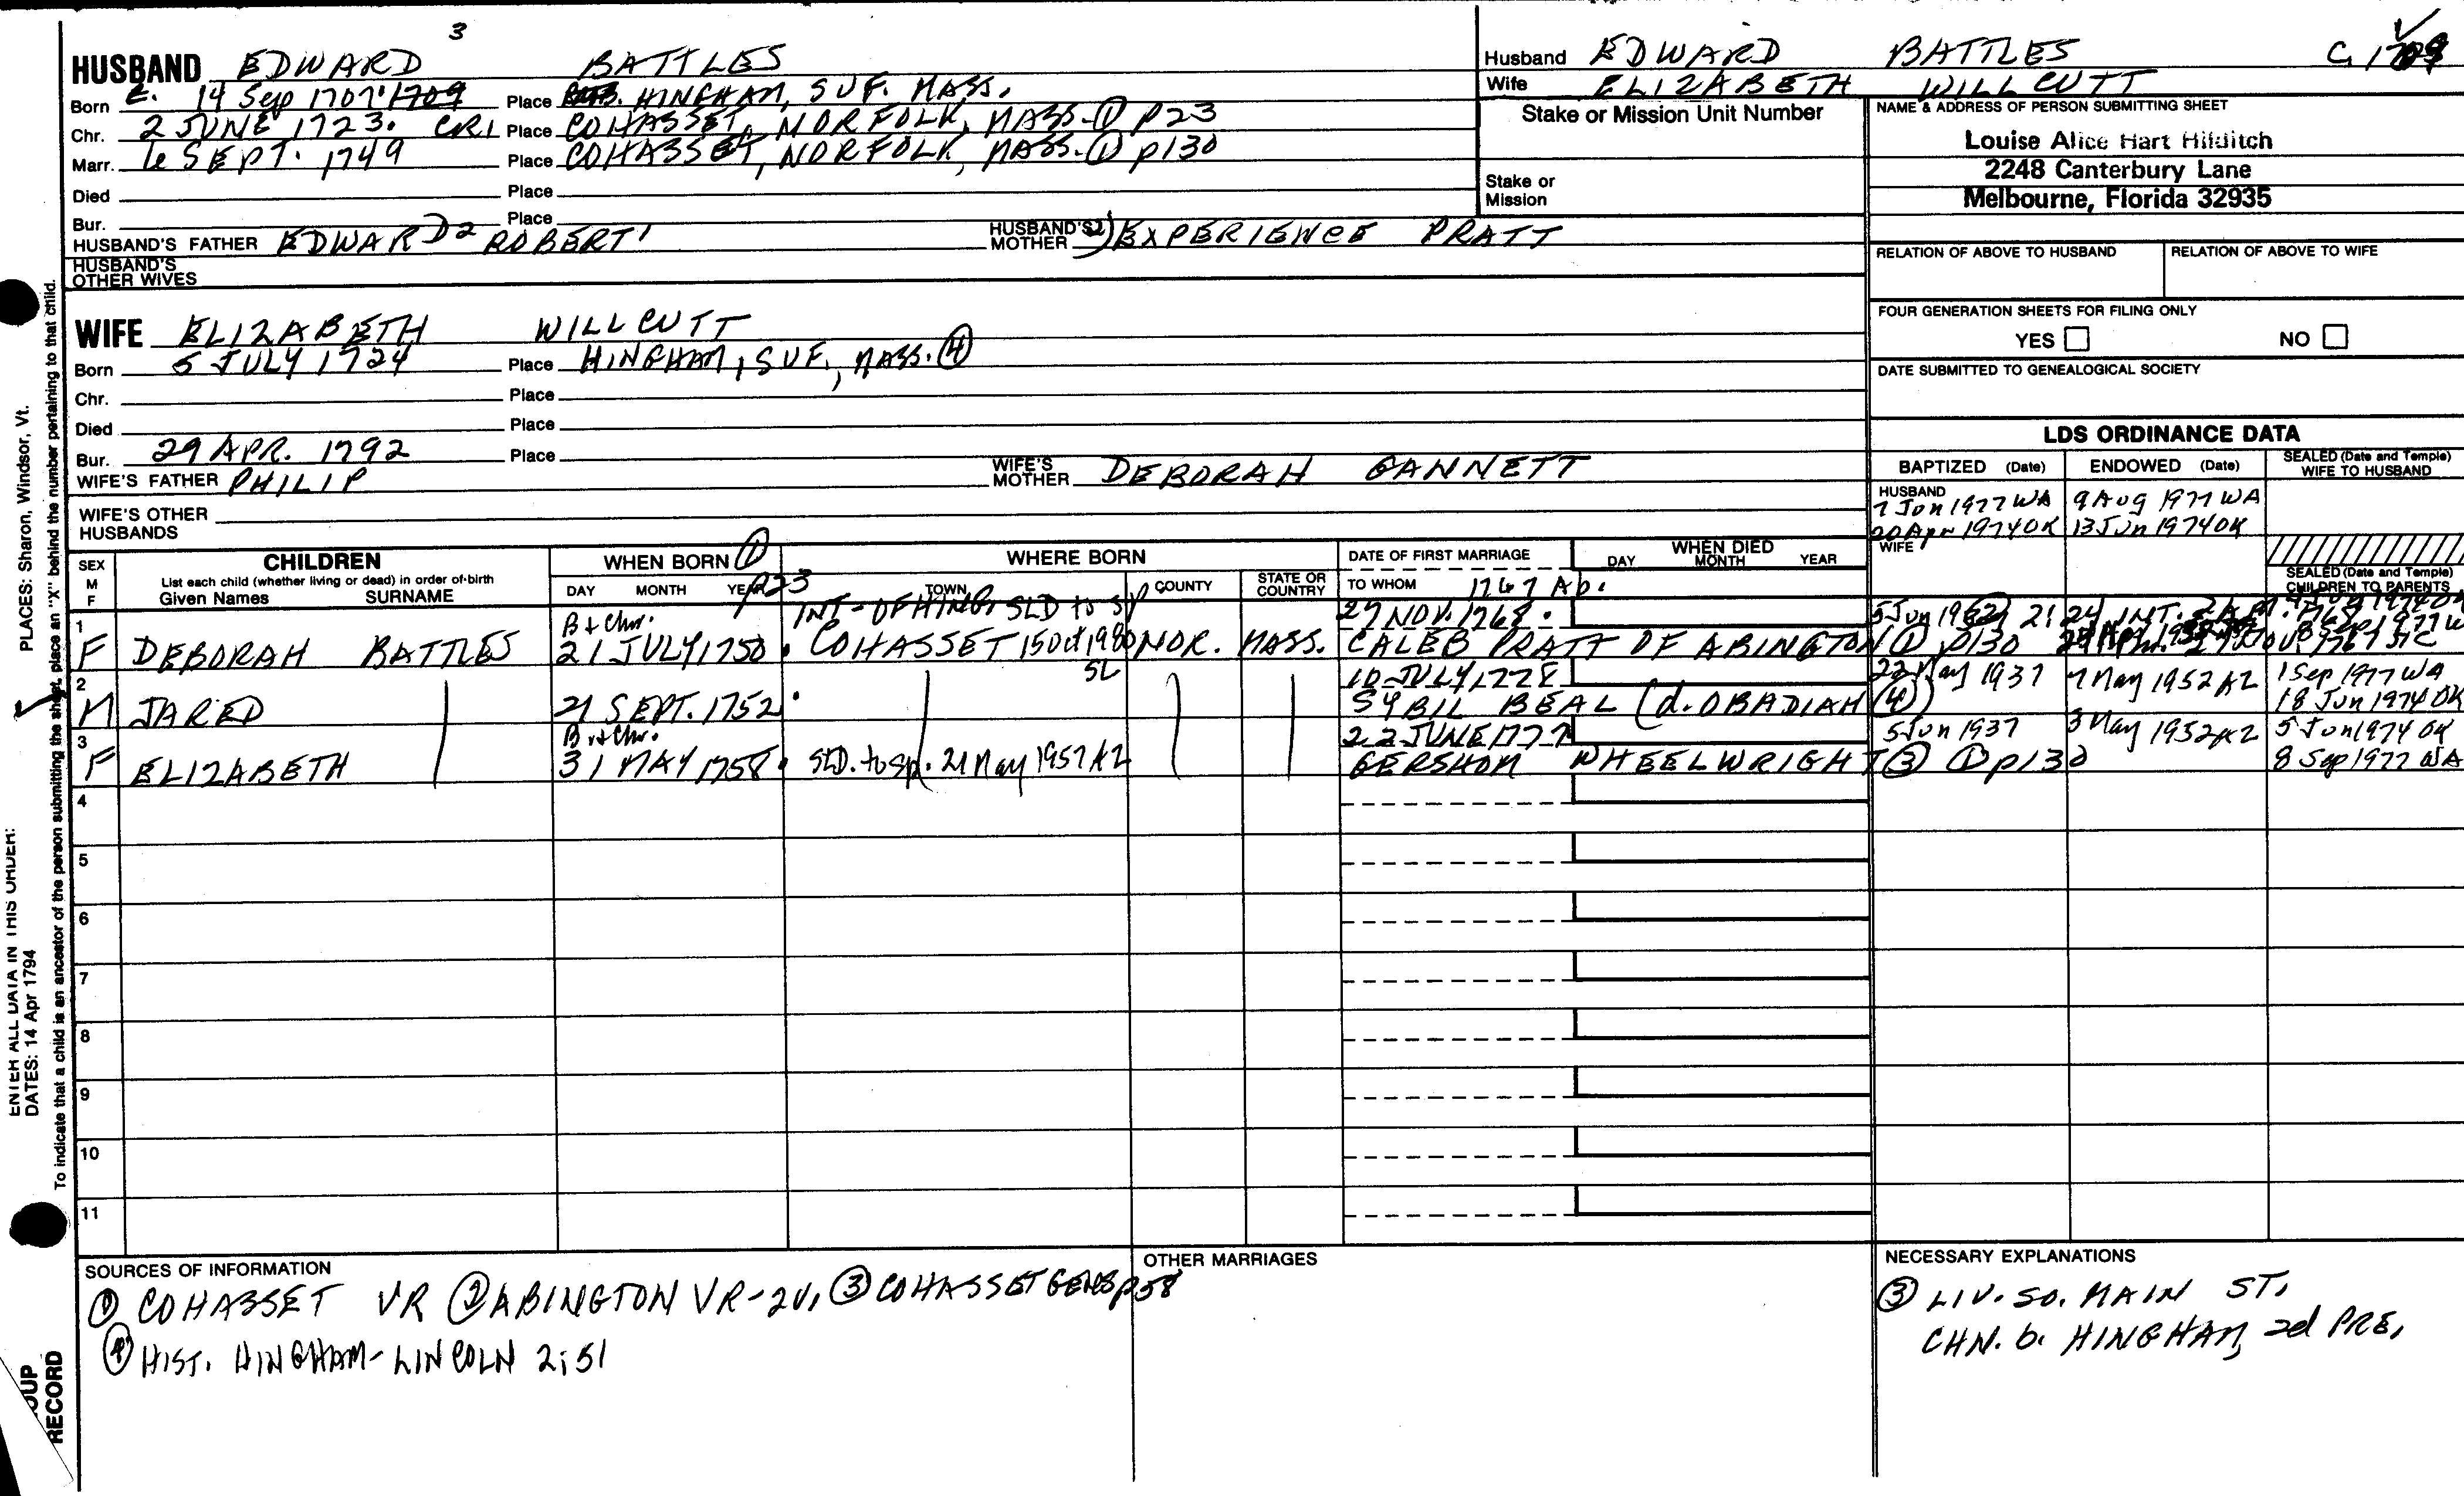 3
HUSBAND EDWARD BATTLES
Born C. 14 Sep 1707 1709 Place HINGHAM, SUF. MASS.
Chr. 2 JUNE 1723. CR1 Place COHASSET, NORFOLK, MASS-① p23
Marr. 6 SEPT. 1749 Place COHASSET, NORFOLK, MASS.① p130
Died Place
Bur. Place
HUSBAND'S FATHER EDWARD² ROBERT¹ HUSBAND'S MOTHER 2) EXPERIENCE PRATT
HUSBAND'S OTHER WIVES
WIFE ELIZABETH WILLCUTT
Born 5 JULY 1724 Place HINGHAM, SUF., MASS. ④
Chr. Place
Died Place
Bur. 29 APR. 1792 Place
WIFE'S FATHER PHILIP WIFE'S MOTHER DEBORAH GANNETT
WIFE'S OTHER HUSBANDS
Husband EDWARD BATTLES C. 1709
Wife ELIZABETH WILLCUTT
Stake or Mission Unit Number
Stake or Mission
NAME & ADDRESS OF PERSON SUBMITTING SHEET
Louise Alice Hart Hilditch
2248 Canterbury Lane
Melbourne, Florida 32935
RELATION OF ABOVE TO HUSBAND RELATION OF ABOVE TO WIFE
FOUR GENERATION SHEETS FOR FILING ONLY
YES NO
DATE SUBMITTED TO GENEALOGICAL SOCIETY
LDS ORDINANCE DATA
BAPTIZED (Date) ENDOWED (Date) SEALED (Date and Temple) WIFE TO HUSBAND
HUSBAND
7 Jun 1977 WA 9 Aug 1977 WA
20 Apr 1974 OK 13 Jun 1974 OK
WIFE
SEALED (Date and Temple) CHILDREN TO PARENTS
SEX M F
CHILDREN
List each child (whether living or dead) in order of birth
Given Names SURNAME
WHEN BORN ① p23
DAY MONTH YEAR
WHERE BORN
TOWN COUNTY STATE OR COUNTRY
DATE OF FIRST MARRIAGE
TO WHOM 1767 Ab.
WHEN DIED
DAY MONTH YEAR
1 B + Chr. INT-OF HING. SLD to sp 27 NOV. 1768.
F DEBORAH BATTLES 21 JULY 1750. COHASSET 15 Oct 1980 SL NOR. MASS. CALEB PRATT OF ABINGTON ① p130
2 10 JULY 1778 22 May 1937 7 May 1952 AZ 1 Sep 1977 WA
M JARED 21 SEPT. 1752. SYBIL BEAL (d. OBADIAH ④) 18 Jun 1974 OK
3 B + Chr. 22 JUNE 1777 5 Jun 1937 3 May 1952 AZ 5 Jun 1974 OK
F ELIZABETH 31 MAY 1758. SLD. to sp. 21 May 1957 AZ GERSHOM WHEELWRIGHT ③ ① p130 8 Sep 1977 WA
4
5
6
7
8
9
10
11
SOURCES OF INFORMATION
① COHASSET VR ② ABINGTON VR-2v, ③ COHASSET GENS p58
④ HIST. HINGHAM-LINCOLN 2:51
OTHER MARRIAGES
NECESSARY EXPLANATIONS
③ LIV. SO. MAIN ST.
CHN. b. HINGHAM, 2d PRE.
ENTER ALL DATA IN THIS ORDER:
DATES: 14 Apr 1794
PLACES: Sharon, Windsor, Vt.
To indicate that a child is an ancestor of the person submitting the sheet, place an "X" behind the number pertaining to that child.
RECORD